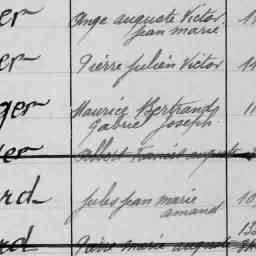 er Ange auguste Victor 1
jean marie
er Pierre Julien Victor 14
ger Maurice Bertrand 1
gabriel Joseph
er Albert Francis auguste
rd Jules jean marie 10
amand
rd Pierre marie auguste